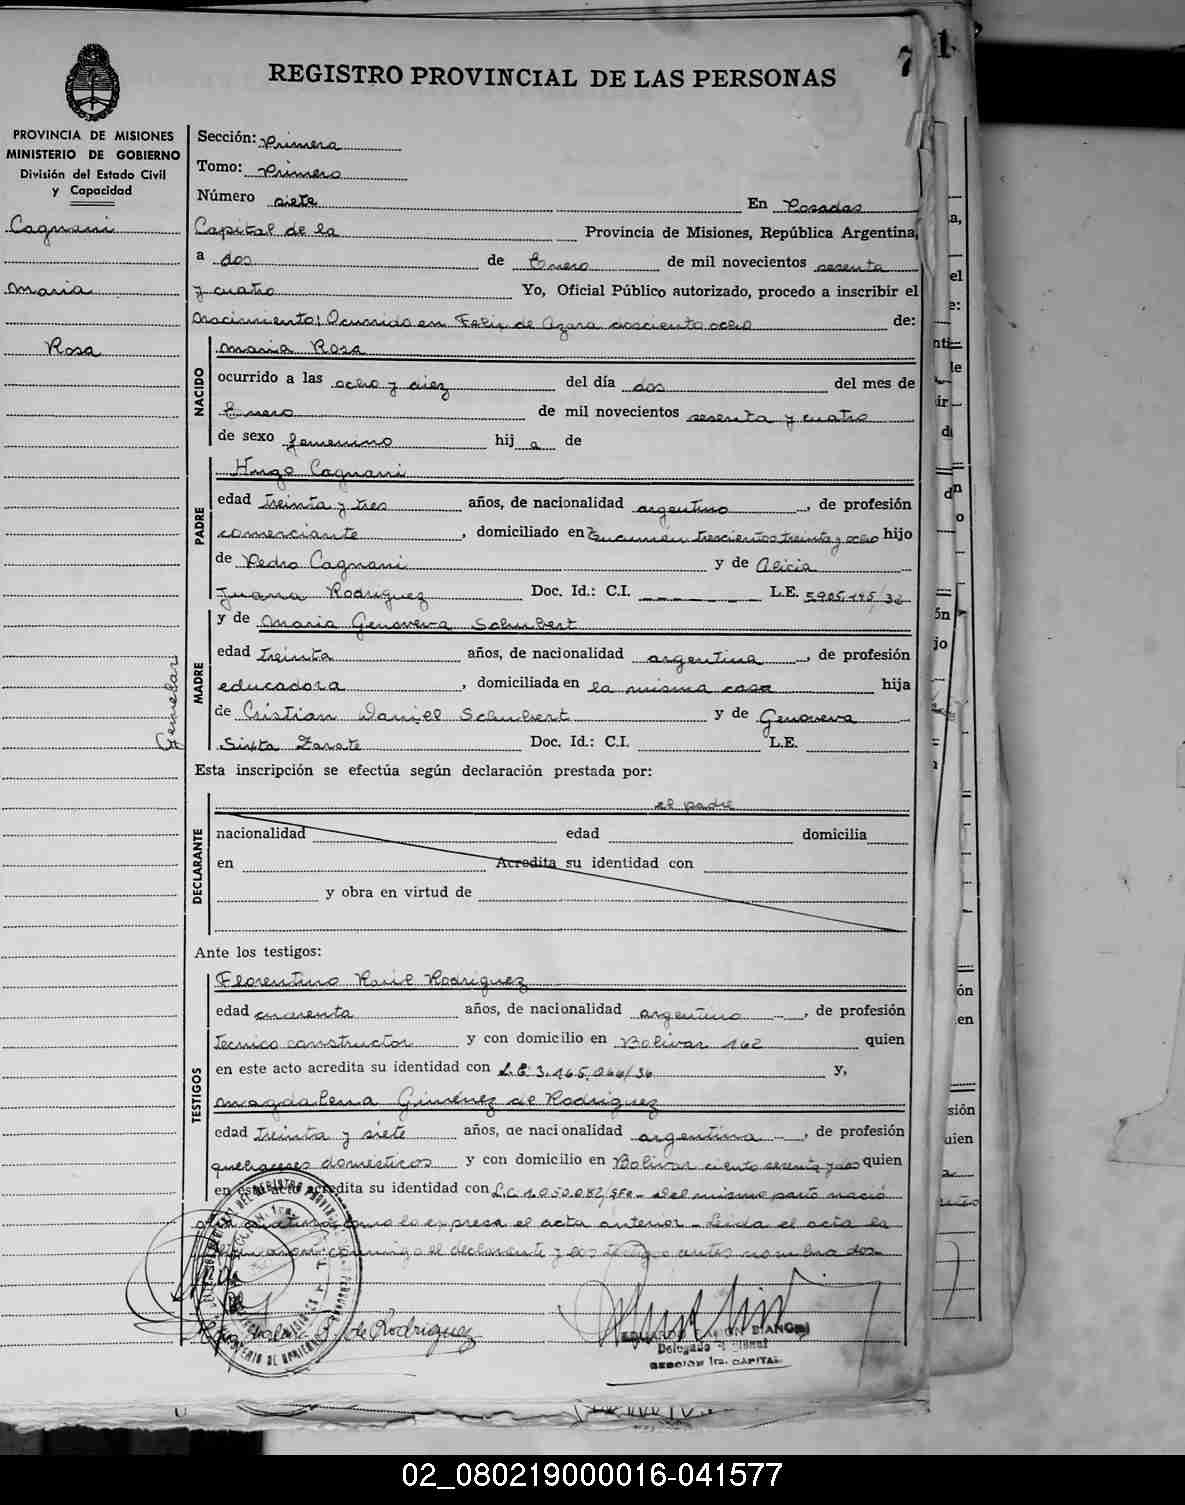 7
1
REGISTRO PROVINCIAL DE LAS PERSONAS
PROVINCIA DE MISIONES
MINISTERIO DE GOBIERNO
División del Estado Civil
y Capacidad
Cagnani
Maria
Rosa
Gemelar
Sección: Primera
Tomo: Primero
Número siete En Posadas
Capital de la Provincia de Misiones, República Argentina,
a dos de Enero de mil novecientos sesenta
y cuatro Yo, Oficial Público autorizado, procedo a inscribir el
nacimiento: Ocurrido en Felix de Azara doscientos ocho de:
NACIDO
Maria Rosa
ocurrido a las ocho y diez del día dos del mes de
Enero de mil novecientos sesenta y cuatro
de sexo femenino hij a de
PADRE
Hugo Cagnani
edad treinta y tres años, de nacionalidad argentino, de profesión
comerciante, domiciliado en Tucumán trescientos treinta y ocho hijo
de Pedro Cagnani y de Alicia
Juana Rodriguez Doc. Id.: C.I. L.E. 5.905.145/32
y de Maria Genoveva Schubert
MADRE
edad treinta años, de nacionalidad argentina, de profesión
educadora, domiciliada en la misma casa hija
de Cristian Daniel Schubert y de Genoveva
Sixta Zarate Doc. Id.: C.I. L.E.
Esta inscripción se efectúa según declaración prestada por:
DECLARANTE
el padre
nacionalidad edad domicilia
en Acredita su identidad con
y obra en virtud de
Ante los testigos:
TESTIGOS
Florentino Raúl Rodriguez
edad cuarenta años, de nacionalidad argentino, de profesión
tecnico constructor y con domicilio en Bolivar 162 quien
en este acto acredita su identidad con L.E. 3.165.066/36 y,
Magdalena Giménez de Rodriguez
edad treinta y siete años, de nacionalidad argentina, de profesión
quehaceres domésticos y con domicilio en Bolivar ciento sesenta y dos quien
en este acto acredita su identidad con L.C. 1.050.082/SFe. Del mismo parto nació
como lo expresa el acta anterior - Leida el acta la
conmigo el declarante y los testigos antes nombrados
de Rodriguez
Delegado Titular
SECCION 1ra. CAPITAL
02_080219000016-041577